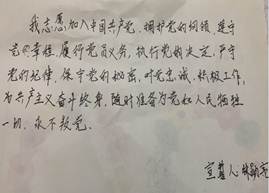 我志愿加入中国共产党，拥护党的纲领，遵守
党的章程，履行党员义务，执行党的决定，严守
党的纪律，保守党的秘密，对党忠诚，积极工作，
为共产主义奋斗终身，随时准备为党和人民牺牲
一切，永不叛党。
宣誓人：